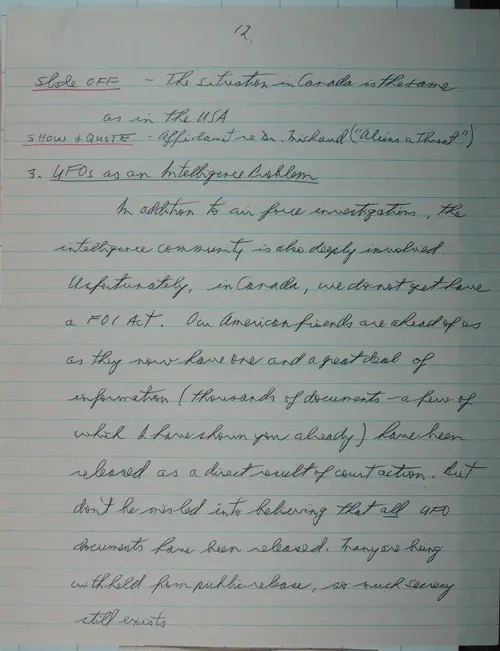 12.
Slide OFF - The situation in Canada is the same
as in the USA
SHOW & QUOTE - Affidavit re Dr. Michaud ("Aliens a Threat")
3. UFOs as an Intelligence Problem
In addition to air force investigations, the
intelligence community is also deeply involved.
Unfortunately, in Canada, we do not yet have
a FOI Act. Our American friends are ahead of us
as they now have one and a great deal of
information (thousands of documents - a few of
which I have shown you already) have been
released as a direct result of court action. But
don't be misled into believing that all UFO
documents have been released. Many are being
withheld from public release, so much secrecy
still exists